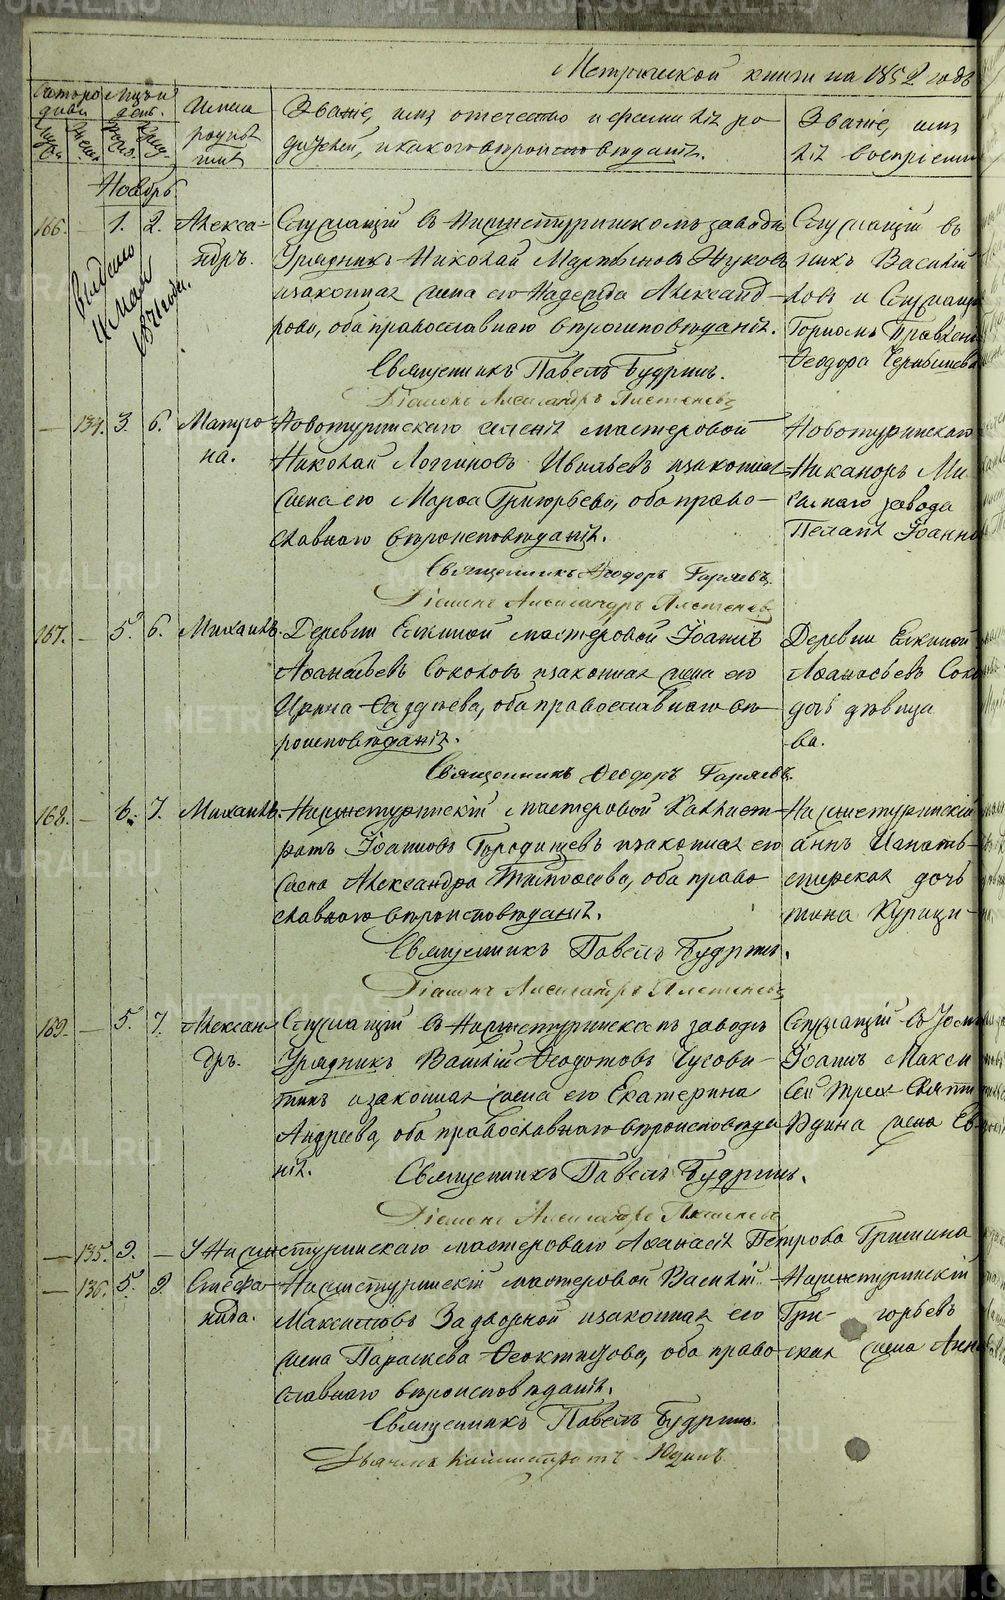 Метрической книги на 1852 годъ
Имена родив
Званіе, имя отечество и фамилія ро
дителей, и какого вѣроисповѣданія.
Званіе, имя
Ноябрь
166. — 1. 2. Алекса-
ндръ.
Выдано
11 Мая
1871 года.
Служащій въ Нижнетуринскомъ заводѣ
Урядникъ Николай Мартыновъ Жуковъ
и законная жена его Надежда Александ-
рова, оба православнаго вѣроисповѣданія.
Священникъ Павелъ Будринъ.
Діаконъ Александръ Плетеневъ
Служащій въ
никъ Василій
ковъ и Служащ
Горномъ Правлен
Ѳеодора Чернышева
— 134. 3. 6. Матро
на.
Новотуринскаго селенія мастеровой
Николай Логгиновъ и законная
жена его Марѳа Григорьева, оба право-
славнаго вѣроисповѣданія.
Священникъ Ѳеодоръ Гаряевъ.
Діаконъ Александръ Плетеневъ
Новотуринскаго
Никаноръ Ми
скаго завода
Пелагія Іоанно
167. — 5. 6. Михаилъ.
Деревни Елкиной мастеровой Іоаннъ
Аѳанасьевъ Соколовъ и законная жена его
Ирина Ѳаддѣева, оба православнаго вѣ-
роисповѣданія.
Священникъ Ѳеодоръ Гаряевъ.
Деревни Елкиной
Аѳанасьевъ Соко
дочь дѣвица
ва.
168. — 6. 7. Михаилъ.
Нижнетуринскій мастеровой Каллист-
ратъ Іоанновъ Городищевъ и законная его
жена Александра Тимоѳеева, оба право
славнаго вѣроисповѣданія.
Священникъ Павелъ Будринъ.
Діаконъ Александръ Плетеневъ
Нижнетуринскій
аннъ Игнать-
стерская дочь
тина Курици-
169. — 5. 7. Алексан-
дръ.
Служащій въ Нижнетуринскомъ заводѣ
Урядникъ Василій Ѳеодотовъ Чусови-
тинъ и законная жена его Екатерина
Андреева, оба православнаго вѣроисповѣда
нія.
Священникъ Павелъ Будринъ.
Діаконъ Александръ Плетеневъ
Служащій въ
Іоаннъ Макси
Юдина жена Ев
— 135. 9. — У Нижнетуринскаго мастероваго Аѳанасія Петрова Гришина
— 136. 5. 9. Стефа-
нида.
Нижнетуринскій мастеровой Василій
Максимовъ Задворной и законная его
жена Параскева Ѳеоктистова, оба право-
славнаго вѣроисповѣданія.
Священникъ Павелъ Будринъ.
Дьячекъ Каллистратъ Юдинъ
Нижнетуринскій
Гри- горьевъ
ская жена Анна
METRIKI.GASO-URAL.RU